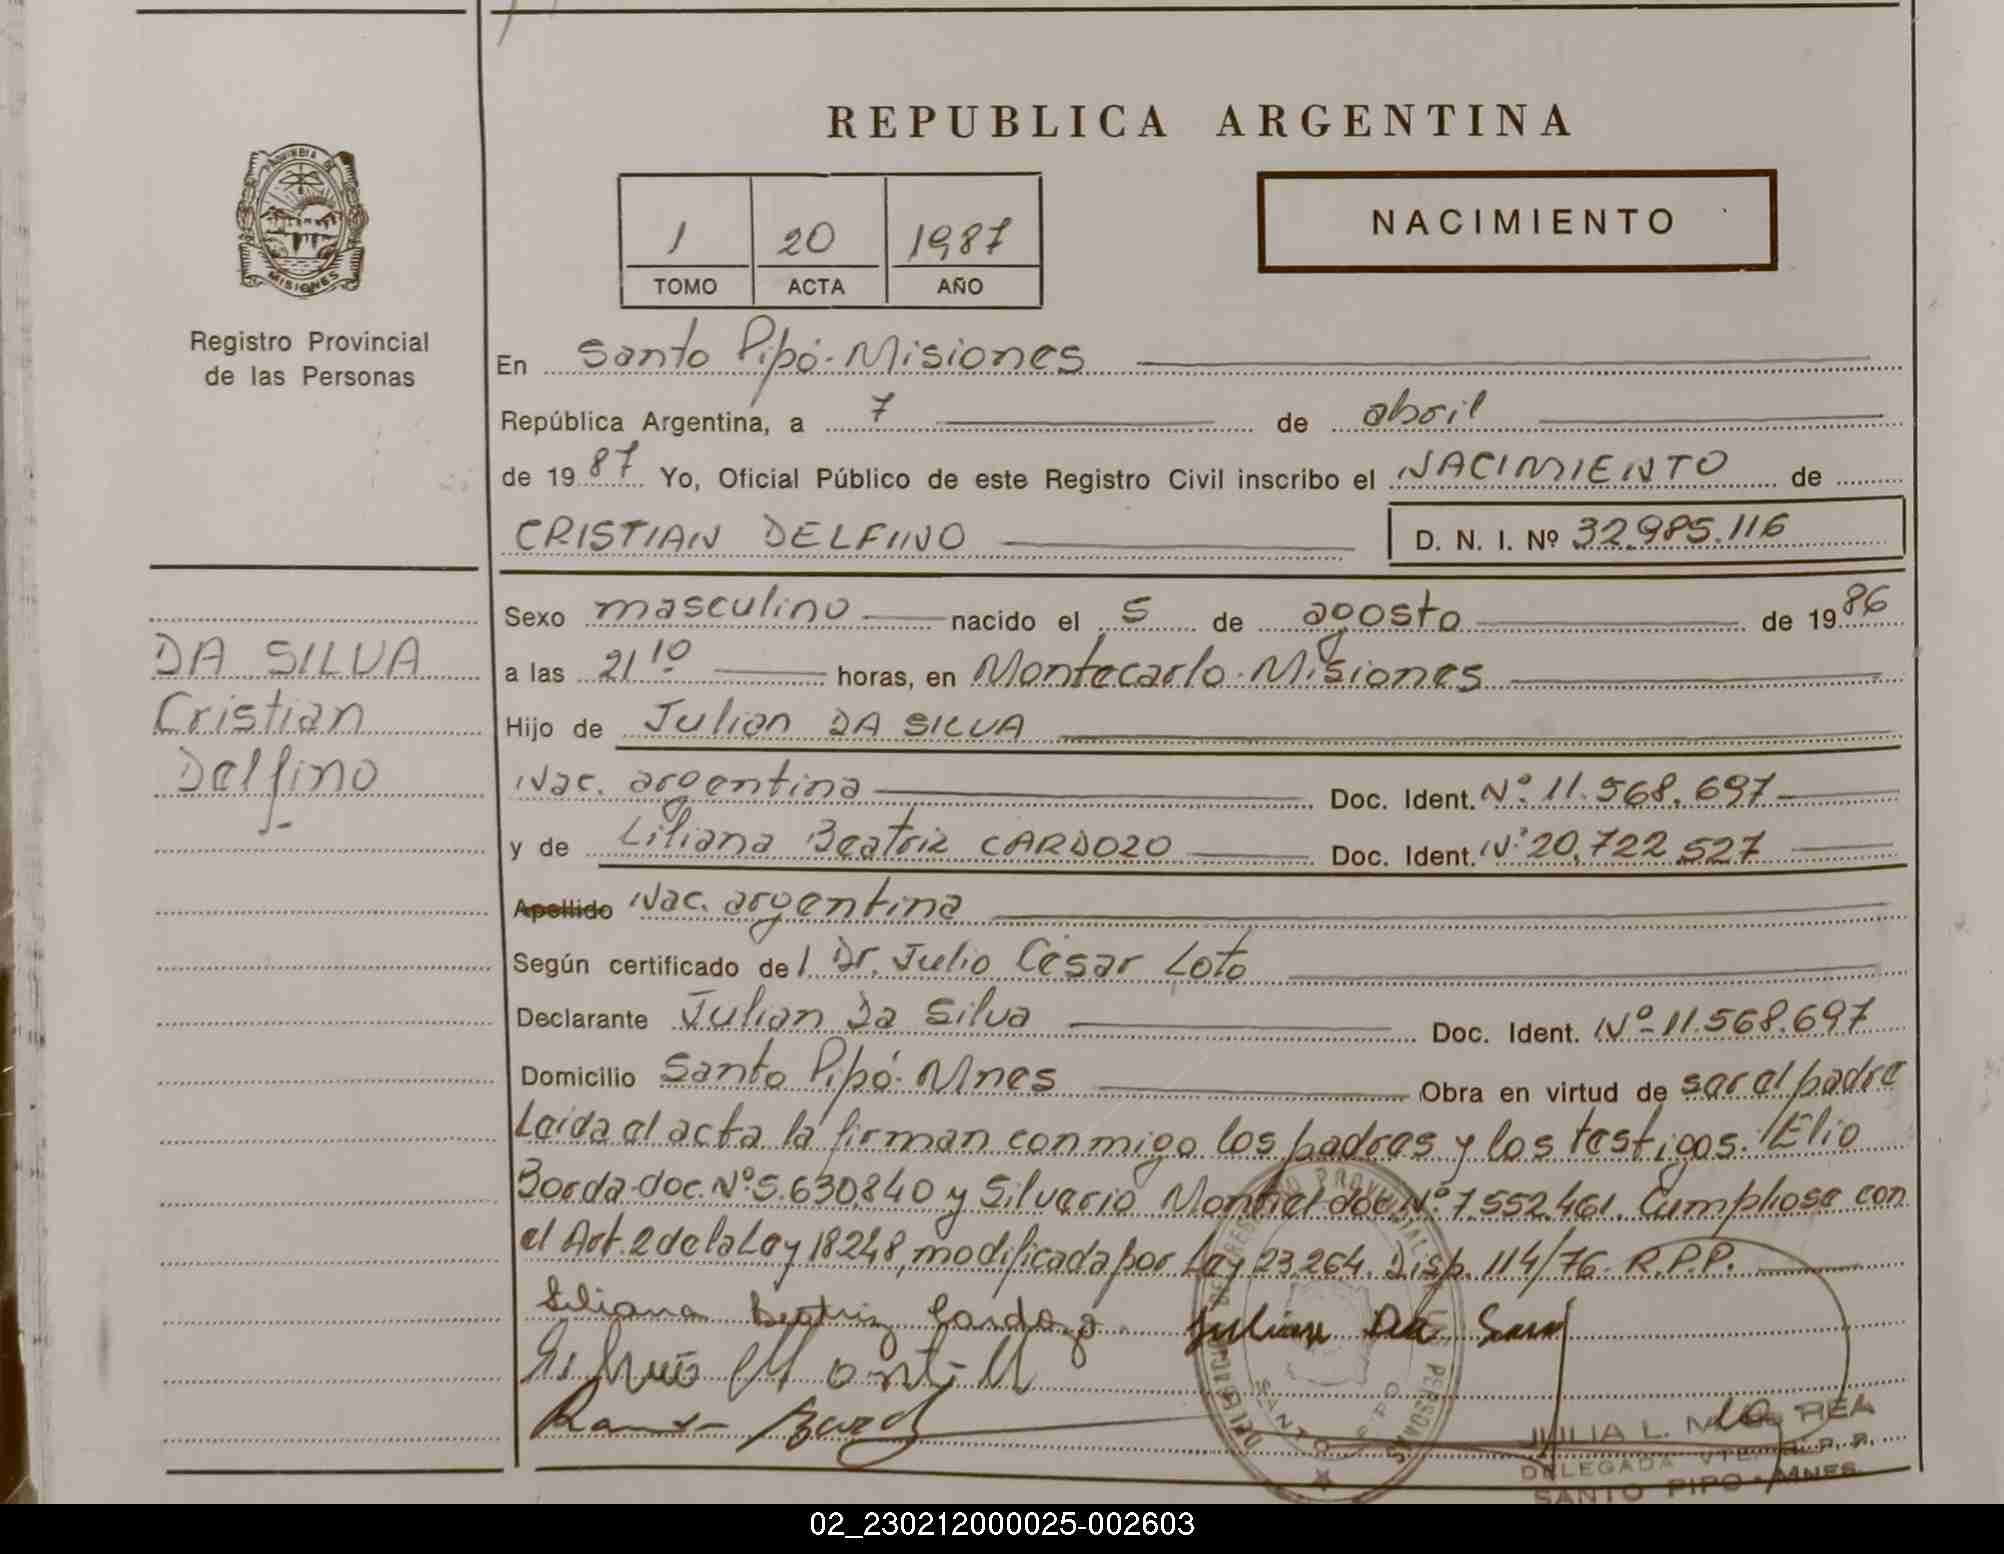 REPUBLICA ARGENTINA
PROVINCIA DE
MISIONES
Registro Provincial
de las Personas
1 20 1987
TOMO ACTA AÑO
NACIMIENTO
En Santo Pipó - Misiones
República Argentina, a 7 de abril
de 1987 Yo, Oficial Público de este Registro Civil inscribo el NACIMIENTO de
CRISTIAN DELFINO D. N. I. Nº 32.985.116
DA SILVA
Cristian
Delfino
Sexo masculino nacido el 5 de agosto de 1986
a las 21 10 horas, en Montecarlo - Misiones
Hijo de Julian DA SILVA
Nac. argentina Doc. Ident. Nº 11.568.697
y de Liliana Beatriz CARDOZO Doc. Ident. Nº 20.722.527
Apellido Nac. argentina
Según certificado del Dr. Julio César Loto
Declarante Julian Da Silva Doc. Ident. Nº 11.568.697
Domicilio Santo Pipó - Mnes Obra en virtud de ser el padre
Leida el acta la firman conmigo los padres y los testigos: Elio
Borda doc. Nº 5.630.840 y Silverio Montiel doc Nº 7.552.461. Cumpliose con
el Art. 2 de la Ley 18248, modificada por Ley 23.264. Disp. 114/76. R.P.P.
Liliana Beatriz Cardozo Julian Da
JULIA L.
DELEGADA
SANTO PIPO - MNES
02_230212000025-002603